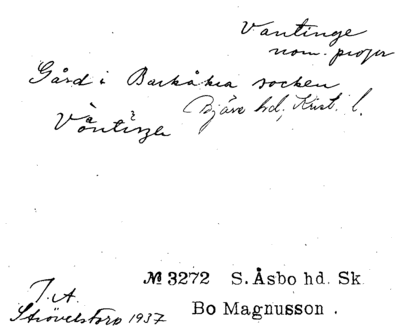 Vantinge
nom. propr
Gård i Barkåkra socken
Bjäre hd, Krist. l.
№ 3272 S. Åsbo hd. Sk
J. A.
Bo Magnusson.
Strövelstorp 1937